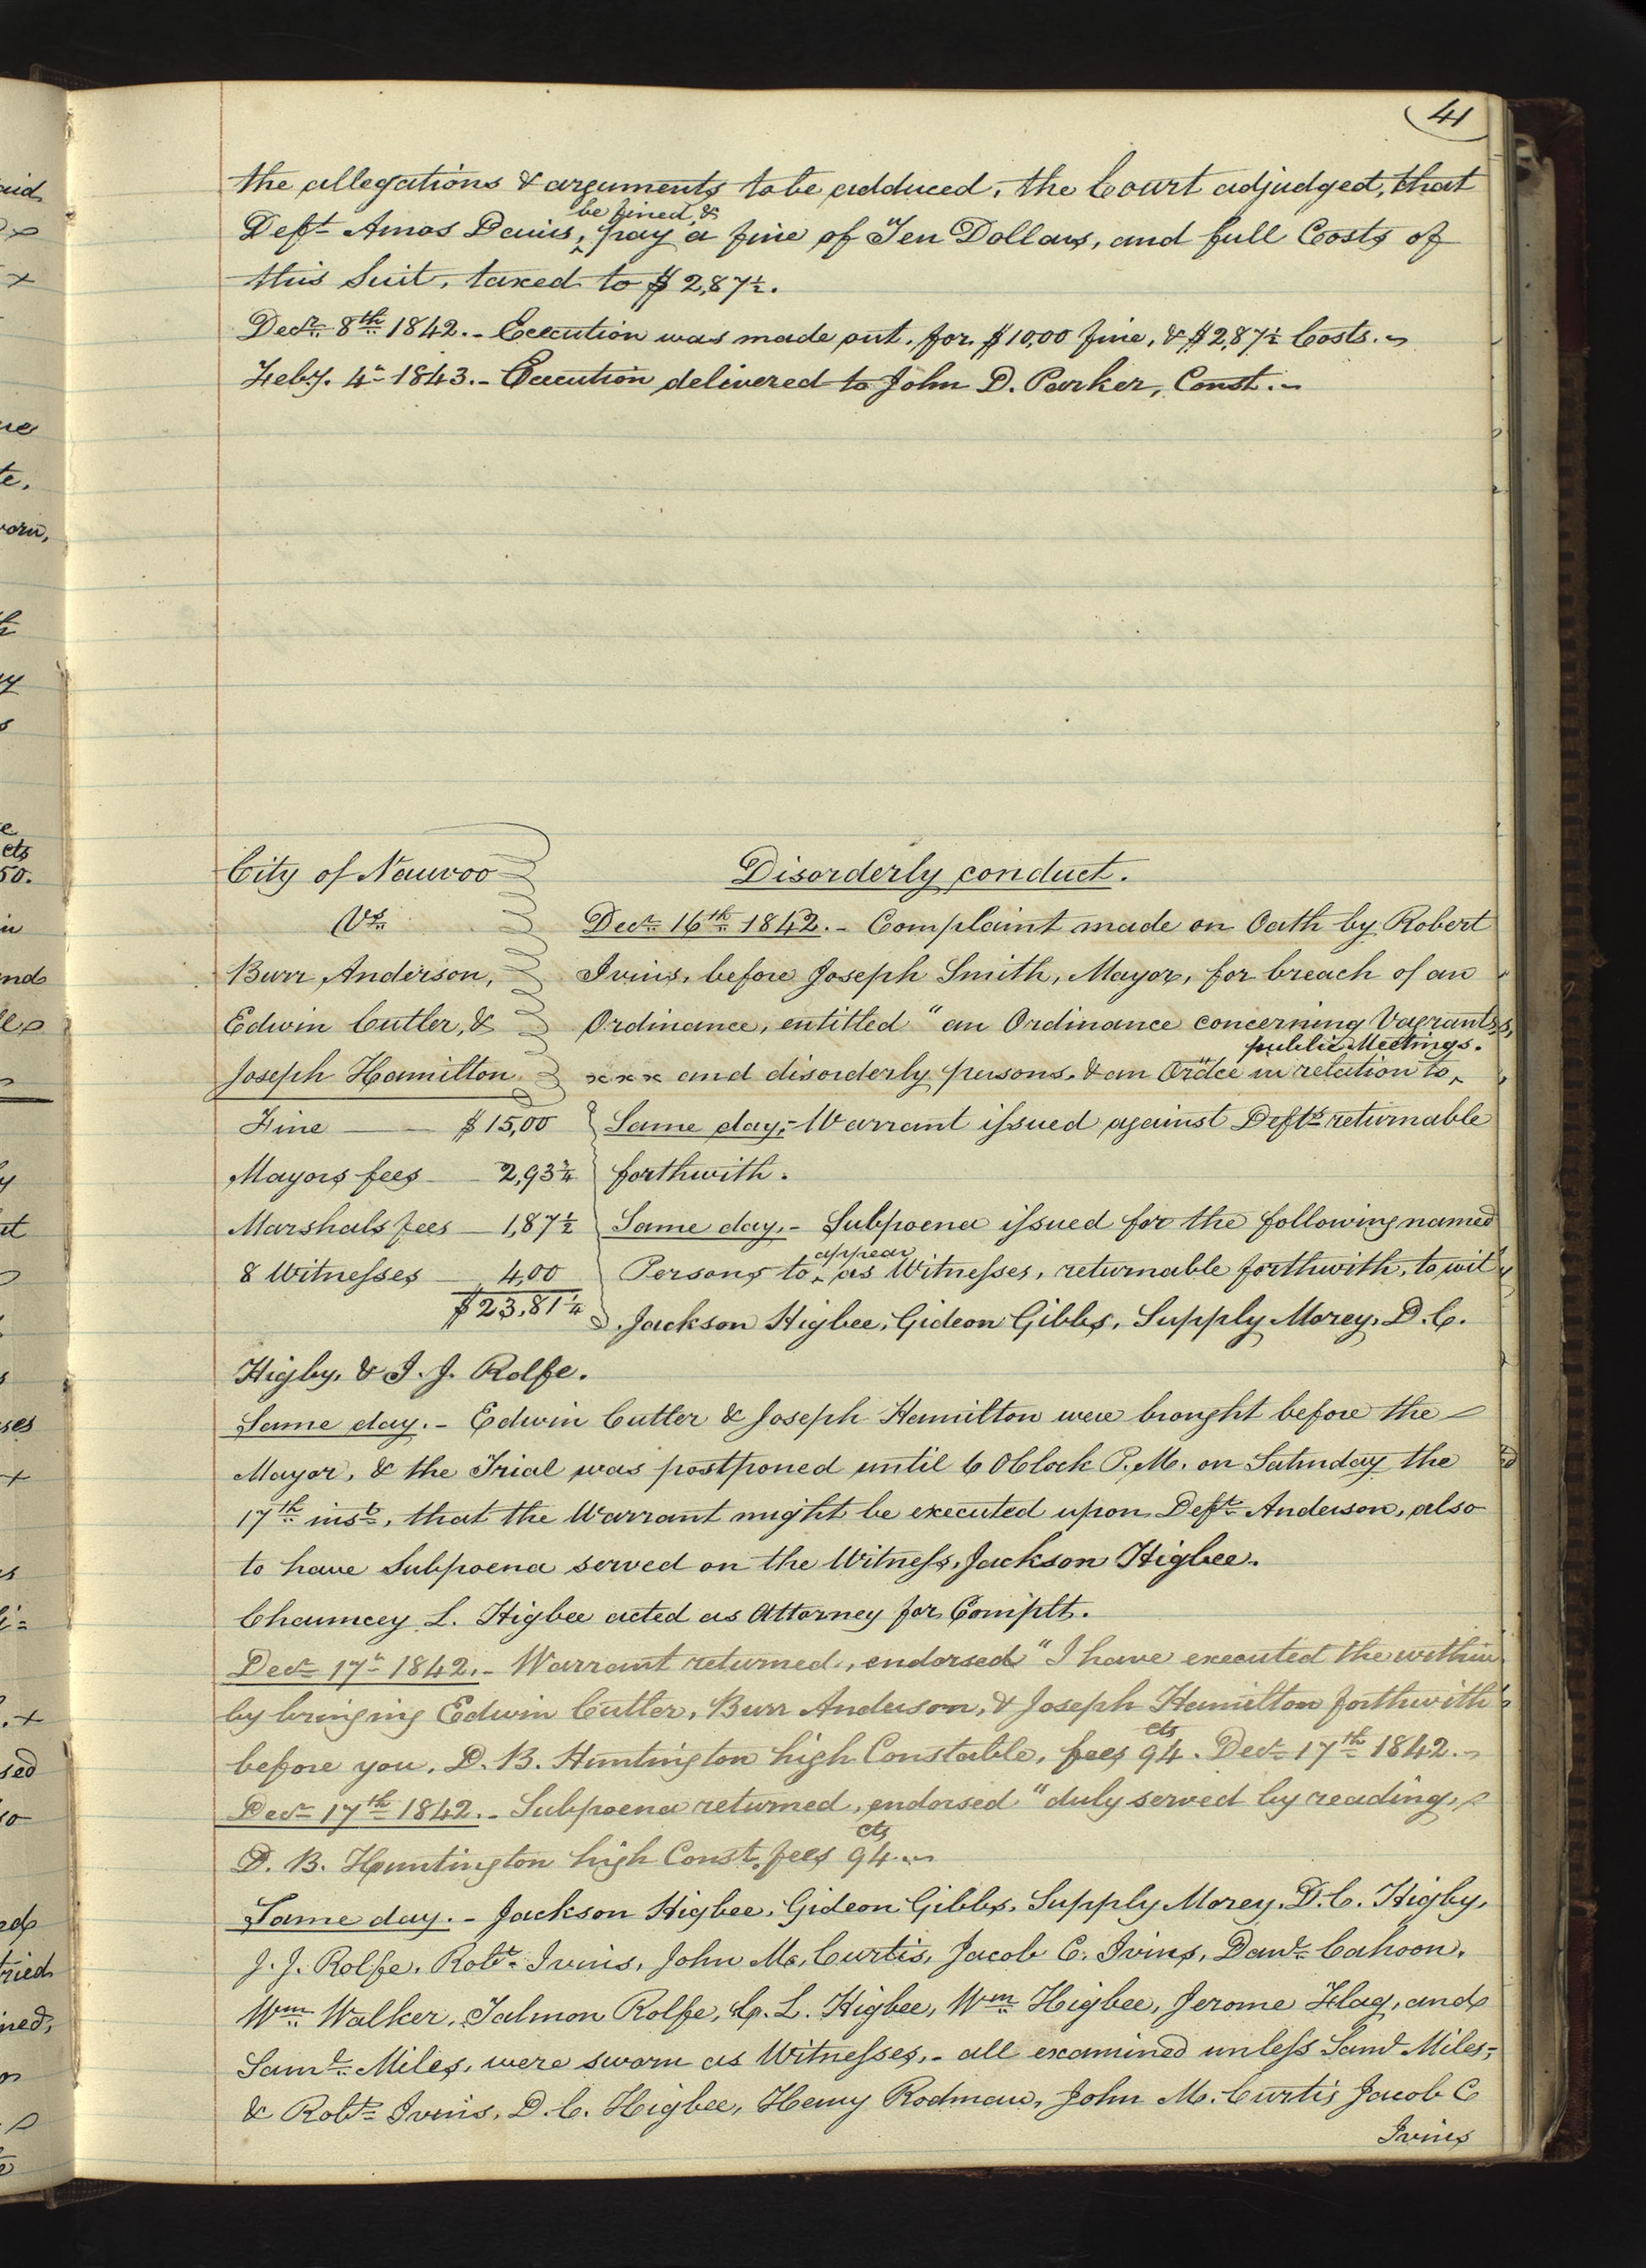 41
the allegations & arguments to be adduced, the Court adjudged, that
be fined &
Deft. Amos Davis, pay a fine of Ten Dollars, and full Costs of
this Suit, taxed to $2,87½.
Decr. 8th. 1842. - Execution was made out, for $10,00 fine, & $2,87½ Costs. ~
Feby. 4th 1843. - Execution delivered to John D. Parker, Const. ~
City of Nauvoo
Vs.
Burr Anderson,
Edwin Cutler, &
Joseph Hamilton
Fine — $15,00
Mayors fees — 2,93¾
Marshals fees — 1,87½
8 Witnesses — 4,00
$23,81¼
Disorderly conduct.
Decr. 16th. 1842. - Complaint made on Oath by Robert
Ivins, before Joseph Smith, Mayor, for breach of an
Ordinance, entitled "an Ordinance concerning Vagrants,
public Meetings.
xxx and disorderly persons, & an Ordce in relation to
Same day; - Warrant issued against Defts. returnable
forthwith.
Same day. - Subpoena issued for the following named
appear
Persons to as Witnesses, returnable forthwith, to wit
Jackson Higbee, Gideon Gibbs, Supply Morey, D. C.
Higby, & I. J. Rolfe.
Same day. - Edwin Cutler & Joseph Hamilton were brought before the
Mayor, & the Trial was postponed until 6 OClock P.M. on Saturday the
17th. inst., that the Warrant might be executed upon Deft. Anderson, also
to have Subpoena served on the Witness, Jackson Higbee.
Chauncey L. Higbee acted as Attorney for Complt.
Decr. 17th 1842. - Warrant returned, endorsed "I have executed the within
by bringing Edwin Cutler, Burr Anderson, & Joseph Hamilton forthwith
cts
before you. D. B. Huntington high Constable, fees 94. Decr. 17th. 1842. ~
Decr. 17th. 1842. - Subpoena returned, endorsed "duly served by reading,
cts
D. B. Huntington high Const. fees 94. ~
Same day. - Jackson Higbee, Gideon Gibbs, Supply Morey, D. C. Higby,
J. J. Rolfe, Robt. Ivins, John M. Curtis, Jacob C. Ivins, Danl. Cahoon,
Wm. Walker, Talmon Rolfe, C. L. Higbee, Wm. Higbee, Jerome Flag, and
Saml. Miles, were sworn as Witnesses, - all examined unless Saml Miles,
& Robt. Ivins, D. C. Higbee, Henry Rodman, John M. Curtis Jacob C
Ivins